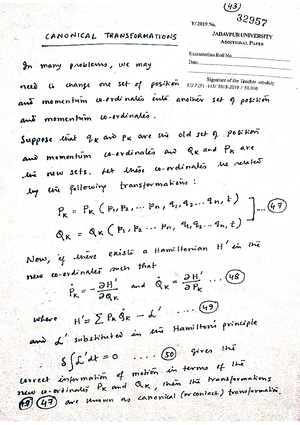 (43)
Y/2019 No. 32957
CANONICAL TRANSFORMATIONS
JADAVPUR UNIVERSITY
ADDITIONAL PAPER
Examination Roll No.
Date
Signature of the Teacher-on-duty
In many problems, we may
need to change one set of position
and momentum co-ordinates into another set of position
and momentum co-ordinates.
Suppose that qₖ and pₖ are the old set of position
and momentum co-ordinates and Qₖ and Pₖ are
the new sets. Let these co-ordinates be related
by the following transformations:
Pₖ = Pₖ (p₁, p₂, ... pₙ, q₁, q₂ ... qₙ, t)
Qₖ = Qₖ (p₁, p₂ ... pₙ, q₁, q₂ ... qₙ, t) ] .... (47)
Now, if there exists a Hamiltonian H' in the
new co-ordinates such that
Ṗₖ = - ∂H'/∂Qₖ and Q̇ₖ = ∂H'/∂Pₖ .... (48)
where H' = Σ Pₖ Q̇ₖ - L' .... (49)
and L' substituted in the Hamilton's principle
δ∫L'dt = 0 .... (50) gives the
correct information of motion in terms of the
new co-ordinates Pₖ and Qₖ, then the transformations
(47) are known as canonical (or contact) transformation.